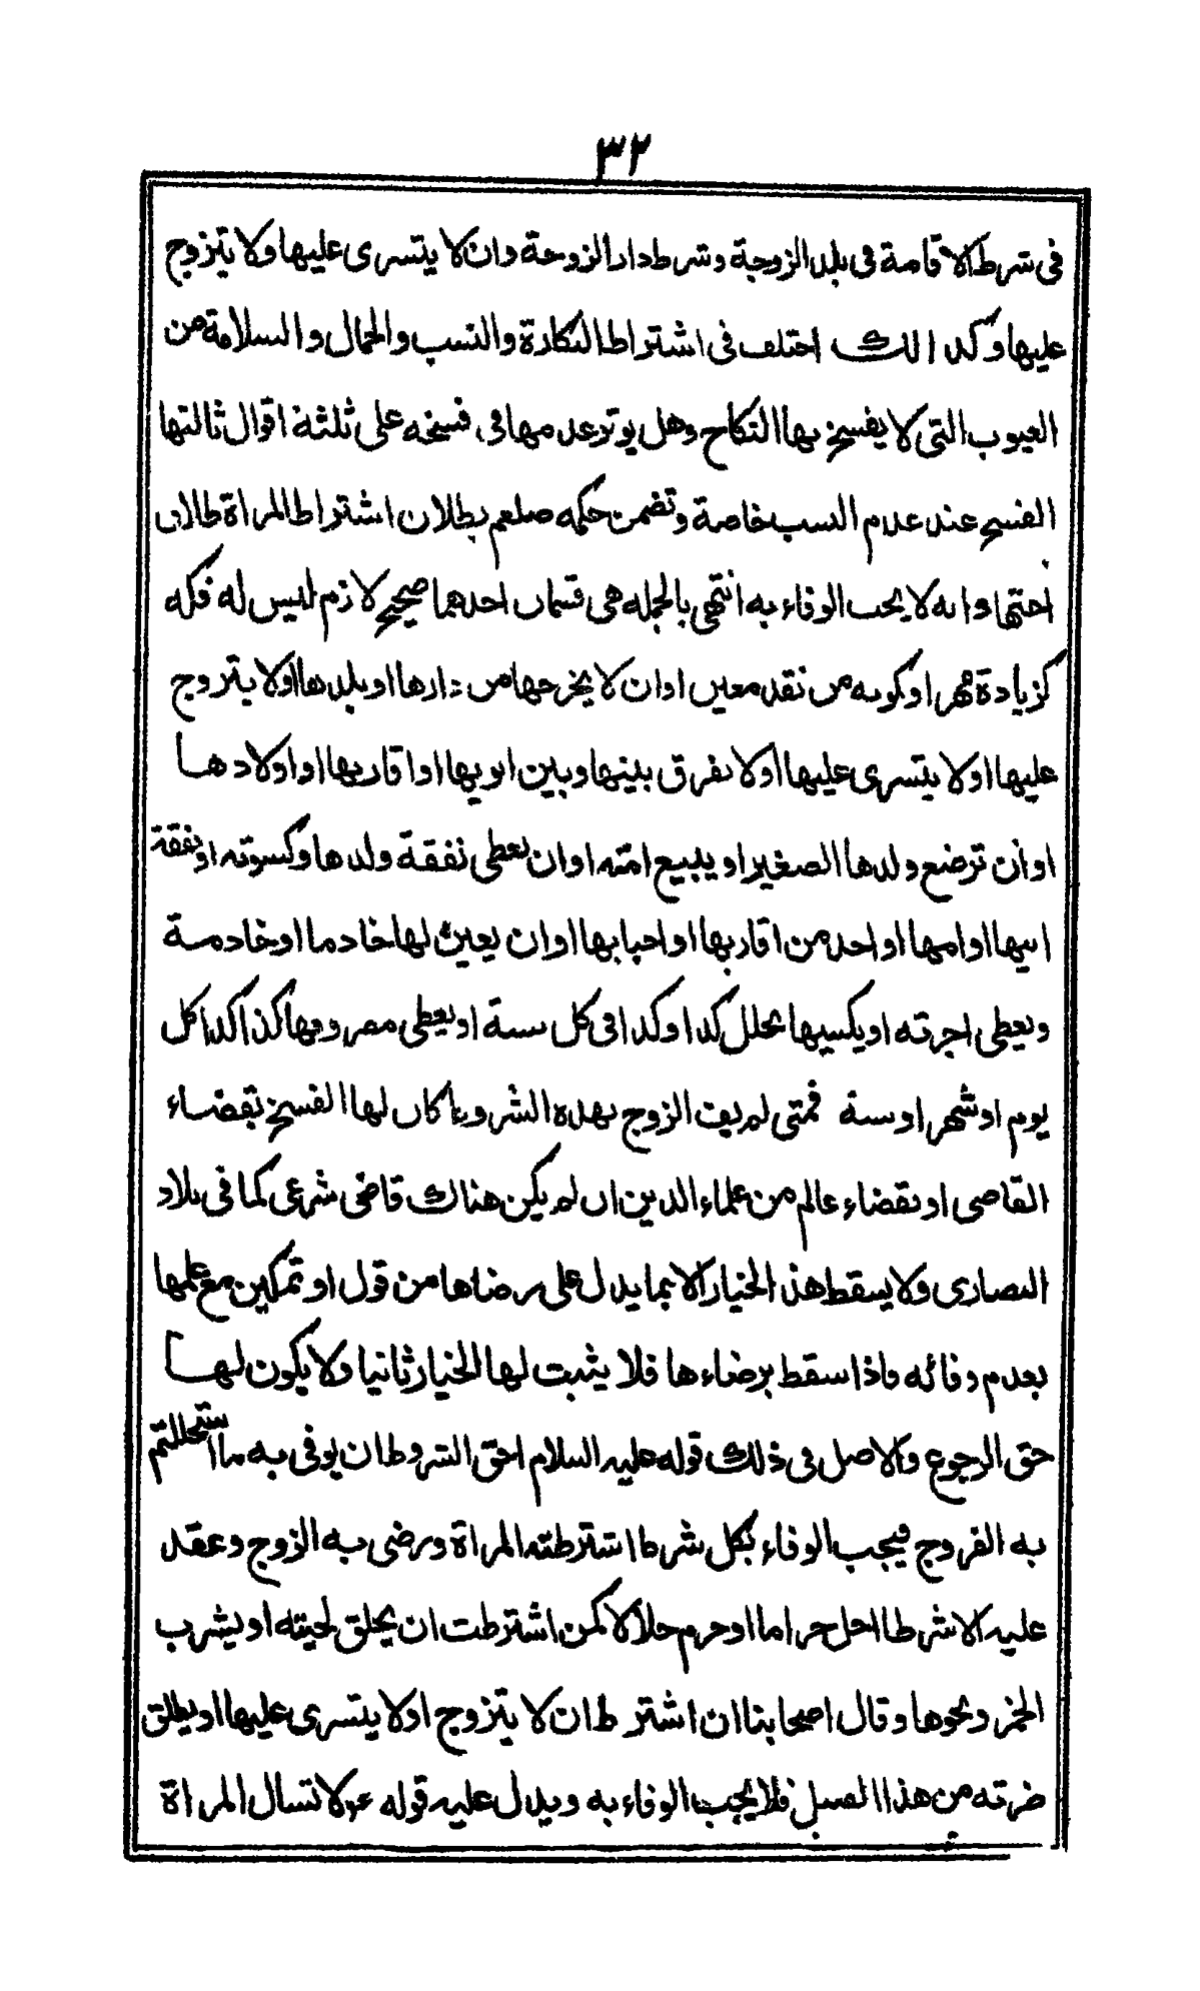 ٣٢
فى شرط الاقامة فى بلد الزوجة وشرط دار الزوجة وان لا يتسرى عليها ولا يتزوج
عليها وكد الك اختلف فى اشتراط البكارة والنسب والجمال والسلامة من
العيوب التى لا يفسخ بها النكاح وهل يوثر عدمها فى فسخه على ثلثة اقوال ثالثها
الفسخ عند عدم النسب خاصة وتضمن حكمه صلعم بطلان اشتراط المراة طلاق
اختها وانه لا يجب الوفاء به انتهى بالجمله هى قسمان احدهما صحيح لازم ليس له فكه
كزيادة مهر او كونه من نقد معين او ان لا يخرجها من دارها او بلدها اولا يتزوج
عليها اولا يتسرى عليها اولا يفرق بينها وبين ابويها او اقاربها او اولادها
او ان ترضع ولدها الصغير او يبيع امته او ان يعطى نفقة ولدها وكسوته او نفقة
ابيها او امها او احد من اقاربها او احبابها او ان يعين لها خادما او خادمة
ويعطى اجرته او يكسيها بحلل كدا وكدا فى كل سنة او يعطى مصروفها كذا كدا كل
يوم او شهر او سنة فمتى لم يف الزوج بهذه الشروط كان لها الفسخ بقضاء
القاضى او بقضاء عالم من علماء الدين ان لم يكن هناك قاضى شرعى كما فى بلاد
النصارى ولا يسقط هذ الخيار الا بما يدل على رضاها من قول او تمكين مع علمها
بعدم وفائه فاذا سقط برضاءها فلا يثبت لها الخيار ثانيا ولا يكون لها
حق الرجوع والاصل فى ذلك قوله عليه السلام احق الشروط ان يوفى به ما استحللتم
به الفروج فيجب الوفاء بكل شرط اشترطته المراة ورضى به الزوج وعقد
عليه الا شرطا احل حراما او حرم حلالا كمن اشترطت ان يحلق لحيته او يشرب
الخمر ونحوها وقال اصحابنا ان اشترط ان لا يتزوج اولا يتسرى عليها او يطلق
ضرته من هذا القبيل فلا يجب الوفاء به ويدل عليه قوله عم لا تسال المراة